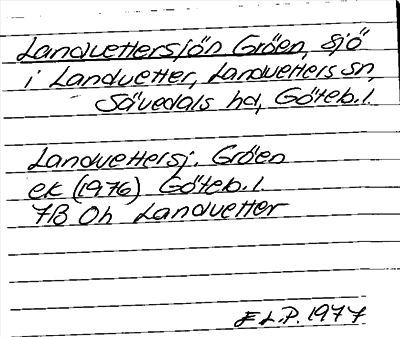 Landvettersjön Gröen, sjö
i Landvetter, Landvetters sn,
Sävedals hd, Göteb. l.
Landvettersj. Gröen
ek (1976) Göteb. l.
7B 0h Landvetter
E L.P. 1977